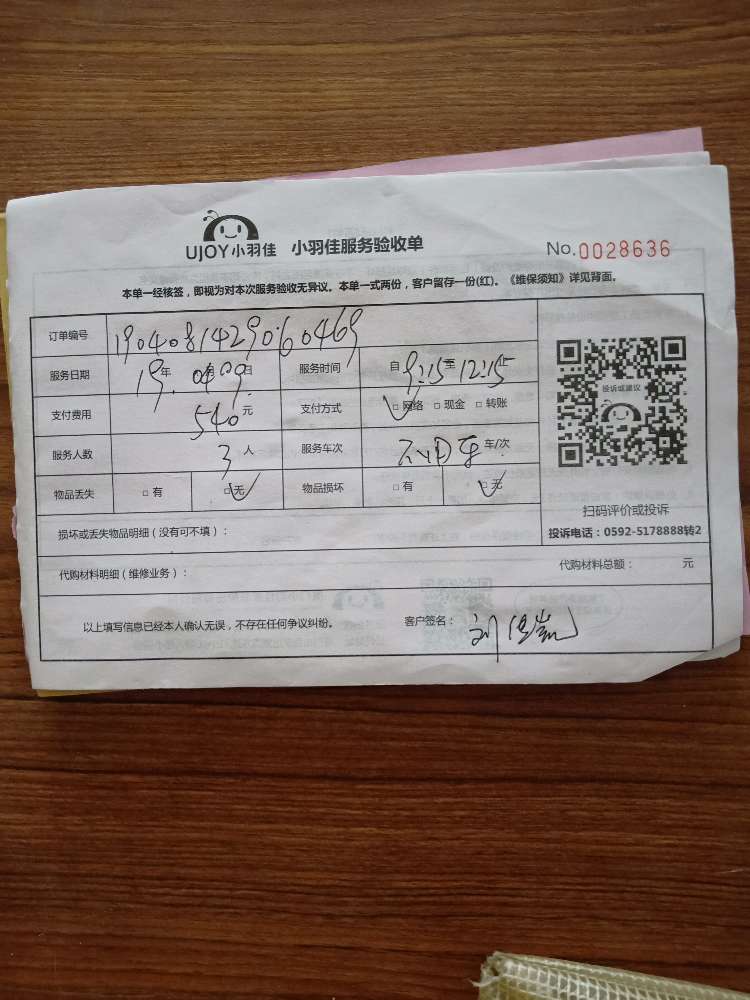 UJOY小羽佳 小羽佳服务验收单 No.0028636
本单一经核签，即视为对本次服务验收无异议。本单一式两份，客户留存一份(红)。《维保须知》详见背面。
订单编号 1904081429060469
服务日期 19年.04月09日 服务时间 自9:15至12:15止
支付费用 540元 支付方式 □网络 □现金 □转账
投诉或建议
服务人数 3人 服务车次 车/次
物品丢失 □有 □无 物品损坏 □有 □无
扫码评价或投诉
损坏或丢失物品明细（没有可不填）：
投诉电话：0592-5178888转2
代购材料明细（维修业务）： 代购材料总额： 元
以上填写信息已经本人确认无误，不存在任何争议纠纷。 客户签名：刘